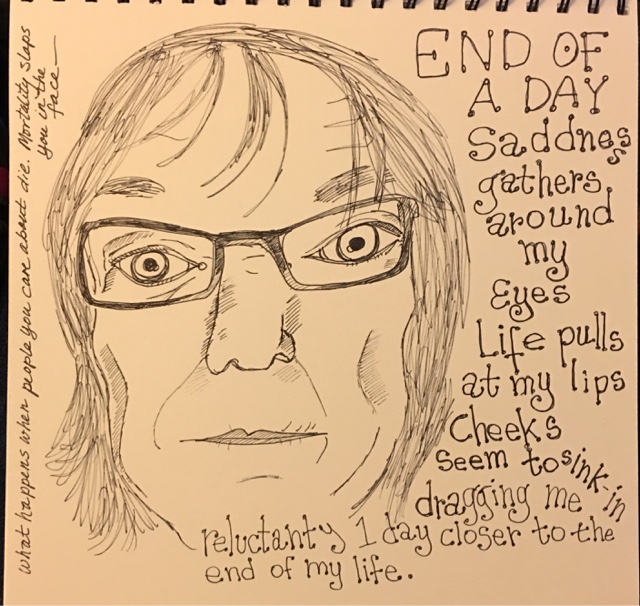 END OF
A DAY
Saddness
gathers
around
my
Eyes
Life pulls
at my lips
Cheeks
seem to sink-in
dragging me
reluctanty 1 day closer to the
end of my life.
what happens when people you care about die. Mortality slaps
you in the
face—